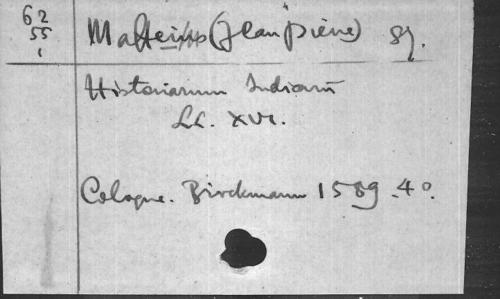 62
55
1
Maffeius (Jean Pierre) SJ.
Historiarum Indicarū
LL. XVI.
Cologne. Birckmann 1589. 4º.